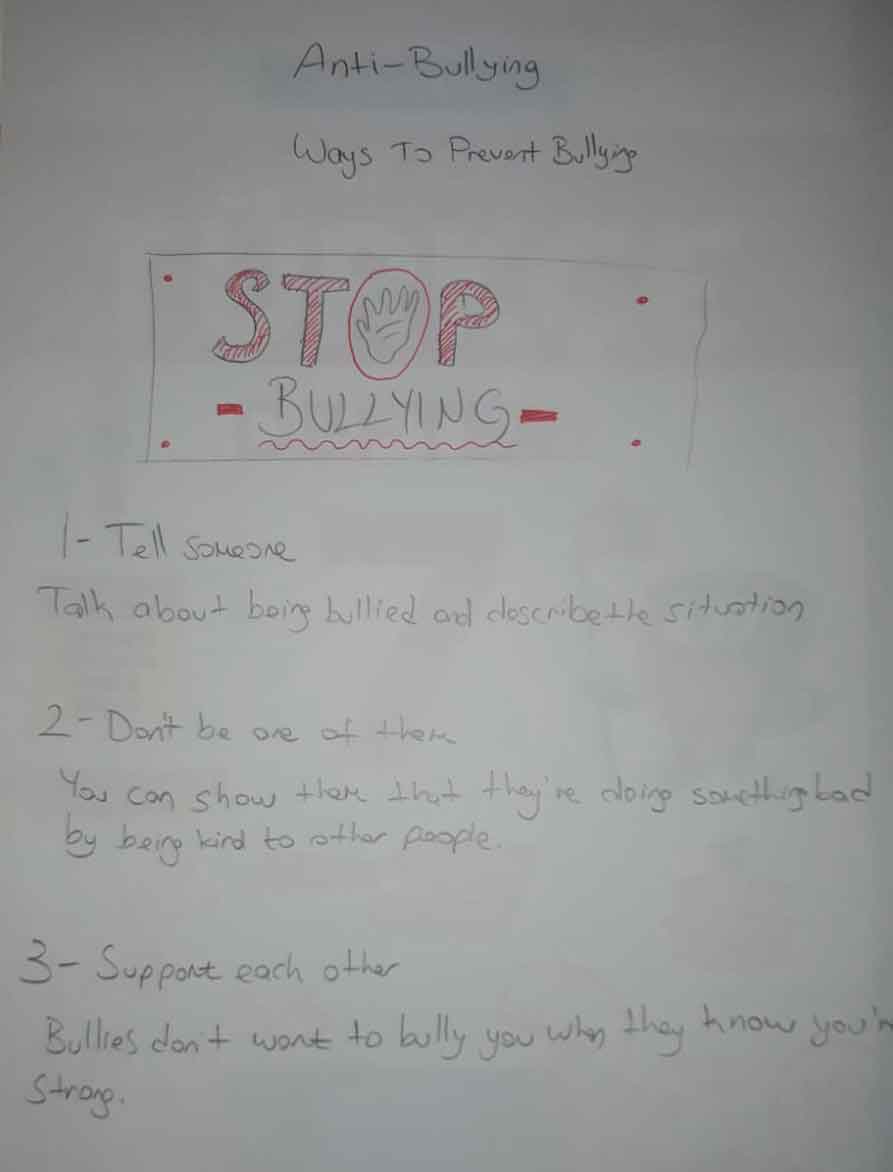 Anti-Bullying
Ways To Prevent Bullying
STOP
- BULLYING -
1- Tell someone
Talk about being bullied and describe the situation
2- Don't be one of them
You can show them that they're doing something bad
by being kind to other people.
3- Support each other
Bullies don't want to bully you when they know you're
strong.